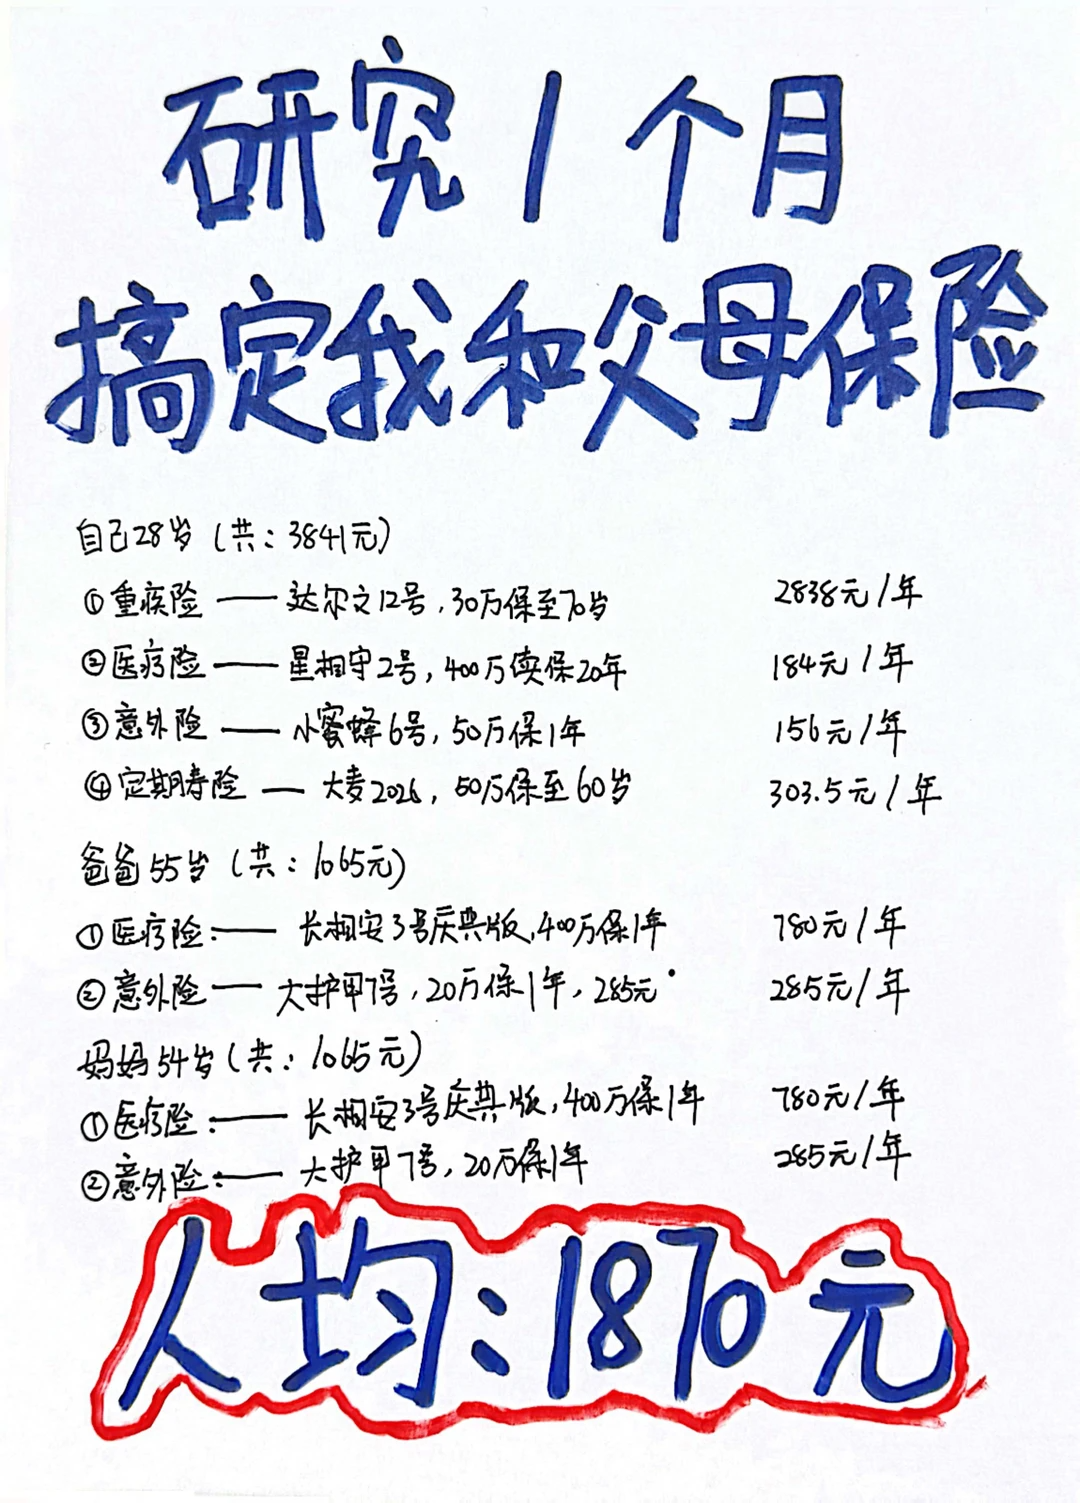 研究1个月
搞定我和父母保险
自己28岁(共:3841元)
①重疾险——达尔文12号,30万保至70岁 2838元/年
②医疗险——星相守2号,400万续保20年 184元/年
③意外险——小蜜蜂6号,50万保1年 156元/年
④定期寿险—大麦2026,50万保至60岁 303.5元/年
爸爸55岁(共:1065元)
①医疗险:——长相安3号庆典版,400万保1年 780元/年
②意外险——大护甲7号,20万保1年,285元 285元/年
妈妈54岁(共:1065元)
①医疗险:——长相安3号庆典版,400万保1年 780元/年
②意外险:——大护甲7号,20万保1年 285元/年
人均:1870元